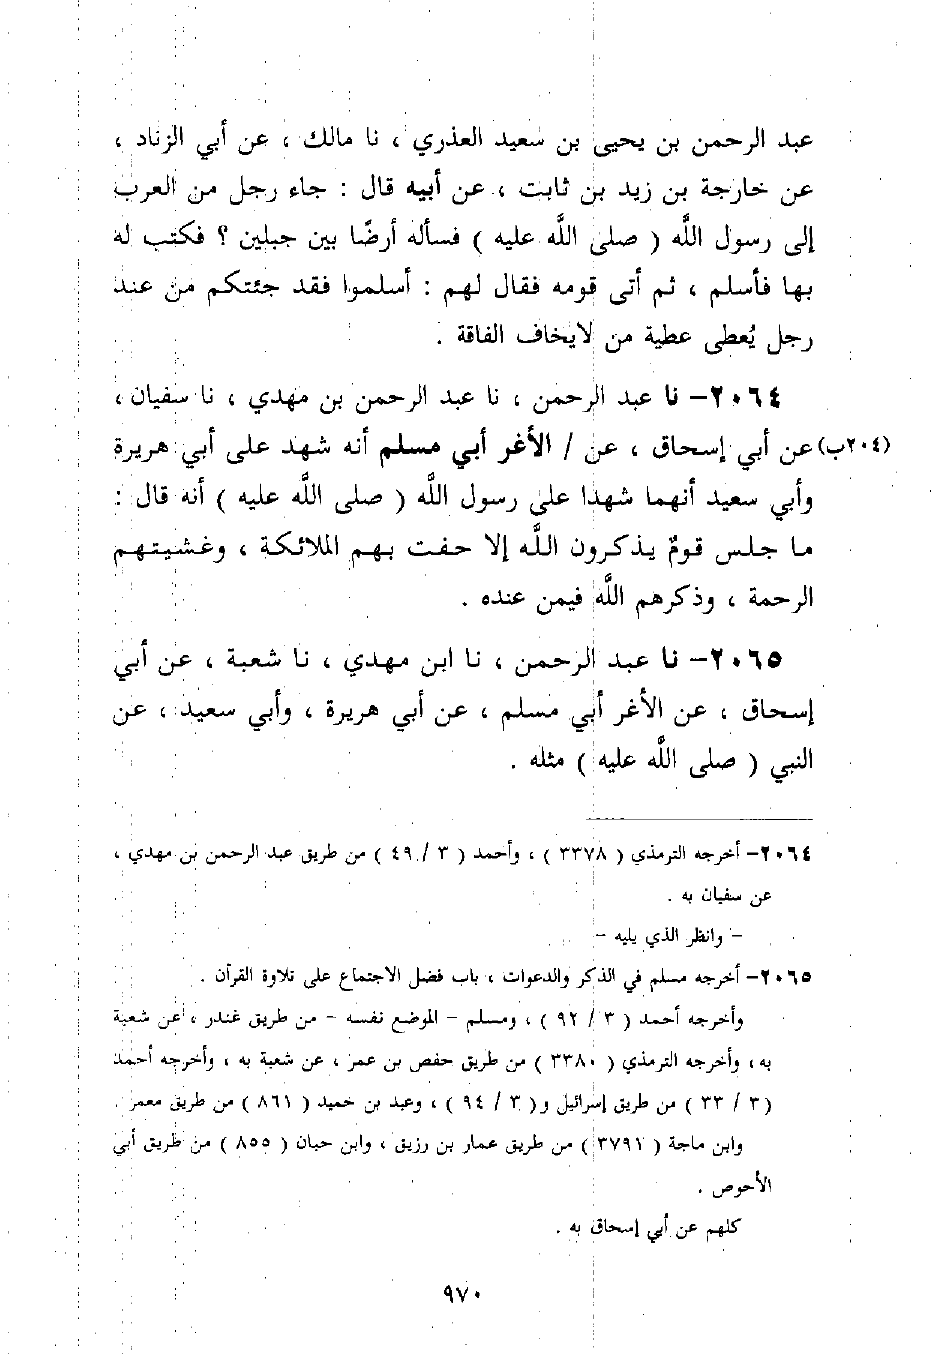 عبد الرحمن بن يحيى بن سعيد العذري ، نا مالك ، عن أبي الزناد ،
عن خارجة بن زيد بن ثابت ، عن أبيه قال : جاء رجل من العرب
إلى رسول اللَّه ( صلى اللَّه عليه ) فسأله أرضًا بين جبلين ؟ فكتب له
بها فأسلم ، ثم أتى قومه فقال لهم : أسلموا فقد جئتكم من عند
رجل يُعطى عطية من لايخاف الفاقة .
٢٠٦٤– نا عبد الرحمن ، نا عبد الرحمن بن مهدي ، نا سفيان ،
(٢٠٤ب) عن أبي إسحاق ، عن / الأغر أبي مسلم أنه شهد على أبي هريرة
وأبي سعيد أنهما شهدا على رسول اللَّه ( صلى اللَّه عليه ) أنه قال :
ما جلس قومٌ يذكرون اللَّه إلا حفت بهم الملائكة ، وغشيتهم
الرحمة ، وذكرهم اللَّه فيمن عنده .
٢٠٦٥– نا عبد الرحمن ، نا ابن مهدي ، نا شعبة ، عن أبي
إسحاق ، عن الأغر أبي مسلم ، عن أبي هريرة ، وأبي سعيد ، عن
النبي ( صلى اللَّه عليه ) مثله .
٢٠٦٤– أخرجه الترمذي ( ٣٣٧٨ ) ، وأحمد ( ٣ / ٤٩ ) من طريق عبد الرحمن بن مهدي ،
عن سفيان به .
– وانظر الذي يليه –
٢٠٦٥– أخرجه مسلم في الذكر والدعوات ، باب فضل الاجتماع على تلاوة القرآن .
وأخرجه أحمد ( ٣ / ٩٢ ) ، ومسلم – الموضع نفسه – من طريق غندر ، عن شعبة
به ، وأخرجه الترمذي ( ٣٣٨٠ ) من طريق حفص بن عمر ، عن شعبة به ، وأخرجه أحمد
(٣ / ٣٣ ) من طريق إسرائيل و( ٣ / ٩٤ ) ، وعبد بن حميد ( ٨٦١ ) من طريق معمر .
وابن ماجة ( ٣٧٩١ ) من طريق عمار بن رزيق ، وابن حبان ( ٨٥٥ ) من طريق أبي
الأحوص .
كلهم عن أبي إسحاق به .
٩٧٠